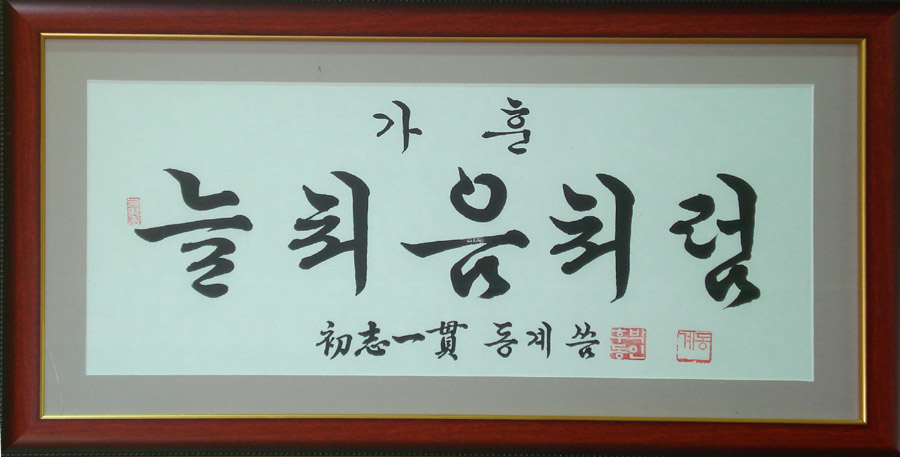 가 훈
늘 처 음 처 럼
初志一貫 동계 씀
동계